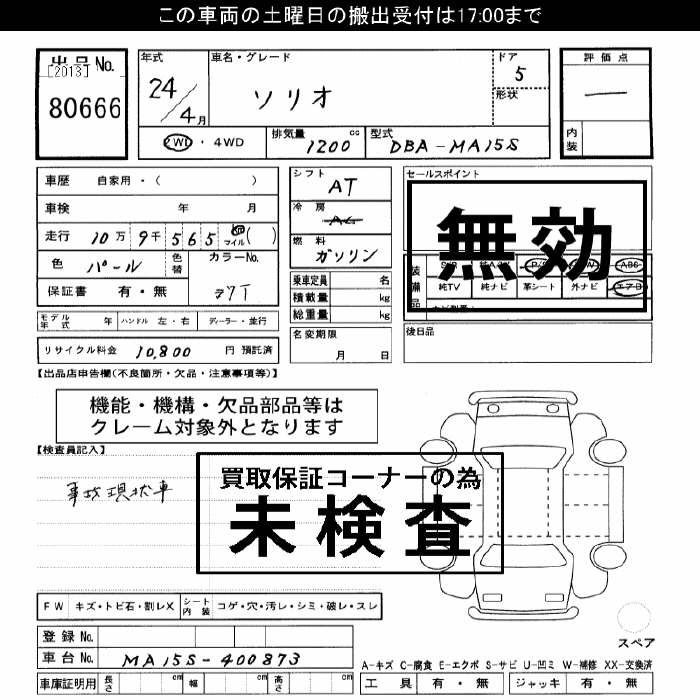 この車両の土曜日の搬出受付は17:00まで
出品No.
[2013]
80666
年式
24/4月
車名・グレード
ソリオ
ドア
5
形状
評価点
―
内装
2WD・4WD
排気量
1200cc
型式
DBA-MA15S
車歴 自家用・( )
車検 年 月
走行 10万9千565 マイル( )
色 パール 色替 カラーNo.
保証書 有・無
モデル年式 年 ハンドル 左・右 ディーラー・並行
リサイクル料金 10,800 円 預託済
シフト
AT
冷房
AC
燃料
ガソリン
乗車定員 名
積載量 kg
総重量 kg
名変期限
月 日
セールスポイント
無効
装備品
純TV 純ナビ 革シート 外ナビ エアB
後日品
【出品店申告欄(不良箇所・欠品・注意事項等)】
機能・機構・欠品部品等は
クレーム対象外となります
【検査員記入】
事故現状車
買取保証コーナーの為
未検査
FW キズ・トビ石・割レX シート内装 コゲ・穴・汚レ・シミ・破レ・スレ
登録No.
車台No. MA15S-400873
車庫証明用 長さ cm 幅 cm 高さ cm
スペア
A-キズ C-腐食 E-エクボ S-サビ U-凹ミ W-補修 XX-交換済
工具 有・無 ジャッキ 有・無